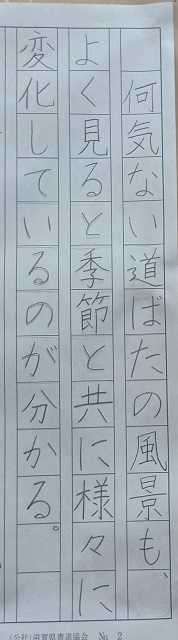 何気ない道ばたの風景も、
よく見ると季節と共に様々に
変化しているのが分かる。
(公社)滋賀県書道協会 No. 2